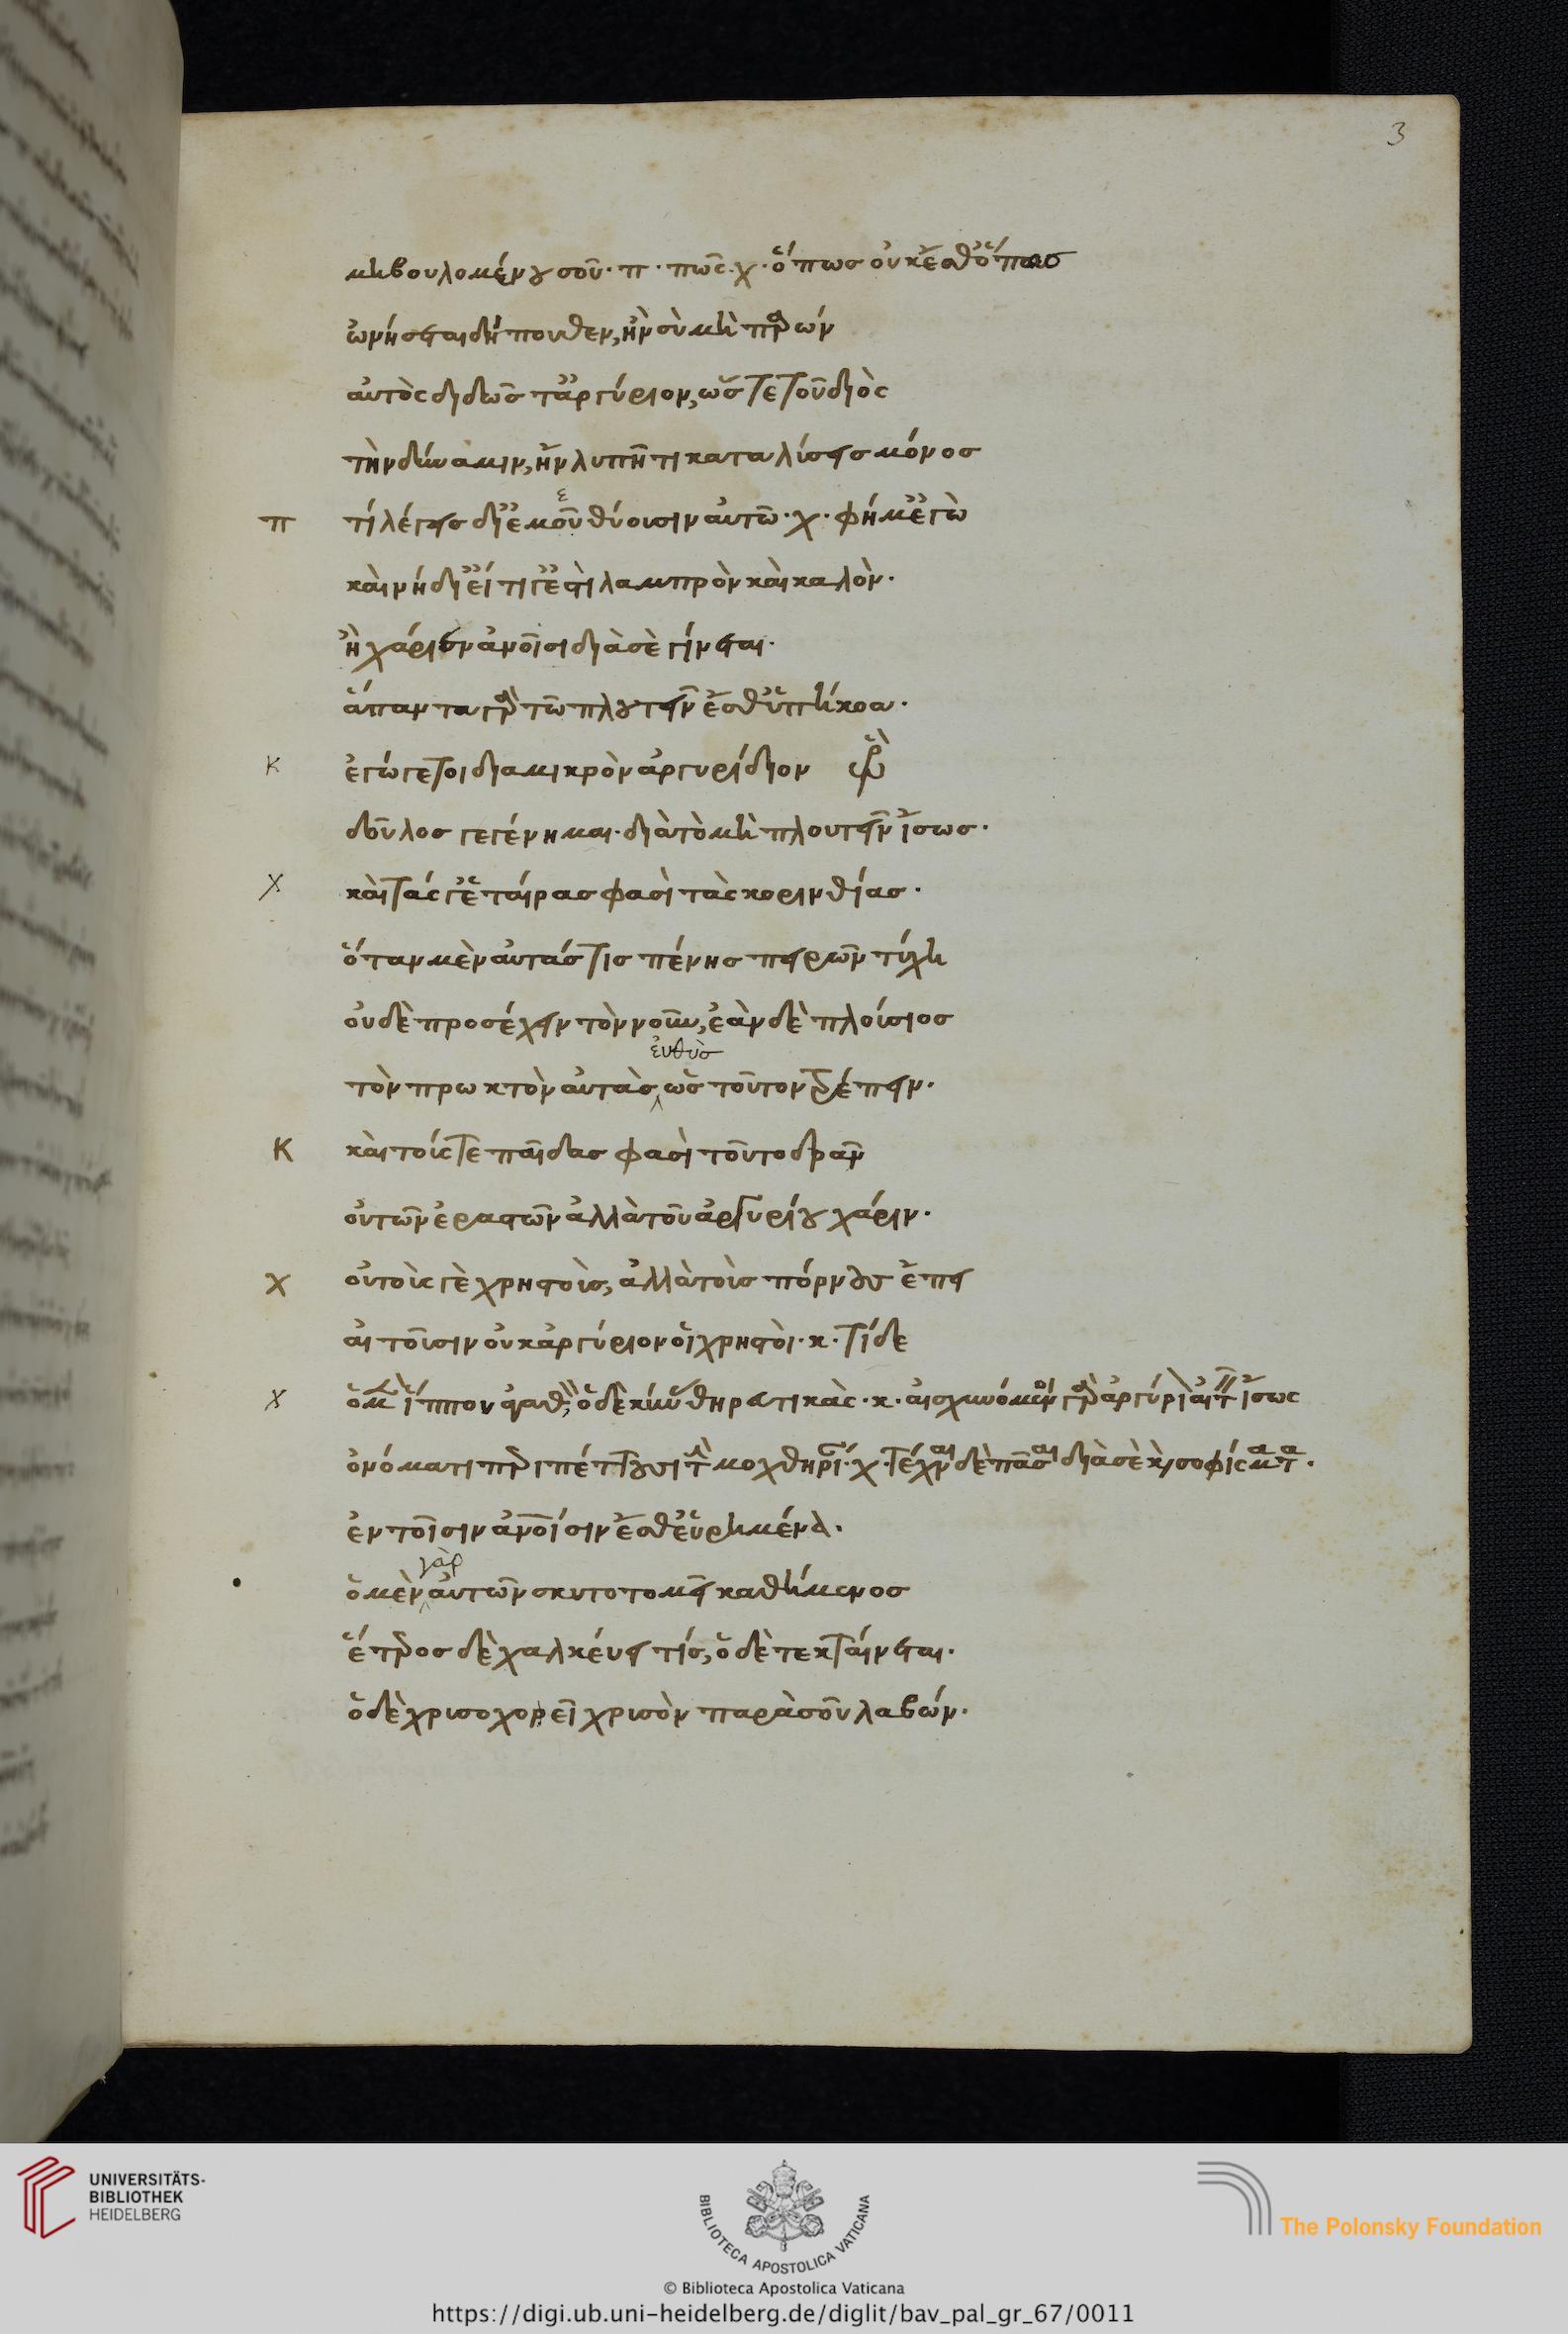 3
μὴ βουλομένου σοῦ· π· πῶς· χ· ὅπως οὐκ ἔσθ' ὅπως
ὠνήσεται δήπουθεν, ἢν σὺ μὴ παρὼν
αὐτὸς διδῶς τἀργύριον, ὥστε τοῦ διὸς
τὴν δύναμιν, ἢν λυπῆ τι καταλύσεις μόνος
π τί λέγεις δι' ἐμοῦ θύουσιν αὐτῶ· χ· φήμ' ἐγὼ
καὶ νὴ δι' εἴ τι γ' ἐστὶ λαμπρὸν καὶ καλὸν·
ἢ χάριεν ἀνοῖσι διὰ σὲ γίνεται·
ἅπαντα γὰρ τῶ πλουτεῖν ἔσθ' ὑπήκοα·
κ ἐγώ γέ τοι διὰ μικρὸν ἀργυρίδιον
δοῦλος γεγένημαι· διὰ τὸ μὴ πλουτεῖν ἴσως·
χ καὶ τάς γ' ἑταίρας φασὶ τὰς κορινθίας·
ὅταν μὲν αὐτάς τις πένης πειρῶν τύχη
οὐδὲ προσέχειν τὸν νοῦν, ἐὰν δὲ πλούσιος
εὐθὺς
τὸν πρωκτὸν αὐτὰς ὡς τοῦτον τρέπειν·
κ καὶ τούς γε παῖδας φασὶ τοῦτο δρᾶν
οὐ τῶν ἐραστῶν ἀλλὰ τοῦ ἀργυρίου χάριν·
χ οὐ τούς γε χρηστοὺς, ἀλλὰ τοὺς πόρνους ἔπει
αἰτοῦσιν οὐκ ἀργύριον οἱ χρηστοὶ· κ· τί δὲ
χ ὁ μὲν ἵππον ἀγαθὸν, ὁ δὲ κύνας θηρευτικὰς· κ· αἰσχυνόμενοι γὰρ ἀργύριον αἰτεῖν ἴσως
ὀνόματι περιπέττουσι τὴν μοχθηρίαν· χ· τέχναι δὲ πᾶσαι διὰ σὲ καὶ σοφίσματα·
ἐν τοῖσιν ἀνοίσιν ἔσθ' εὑρημένα·
γὰρ
ὁ μὲν αὐτῶν σκυτοτομεῖ καθήμενος
ἕτερος δὲ χαλκεύει τίς, ὁ δὲ τεκταίνεται·
ὁ δὲ χρυσοχοεῖ χρυσὸν παρὰ σοῦ λαβών·
UNIVERSITÄTS-
BIBLIOTHEK
HEIDELBERG
BIBLIOTECA APOSTOLICA VATICANA
The Polonsky Foundation
© Biblioteca Apostolica Vaticana
https://digi.ub.uni-heidelberg.de/diglit/bav_pal_gr_67/0011